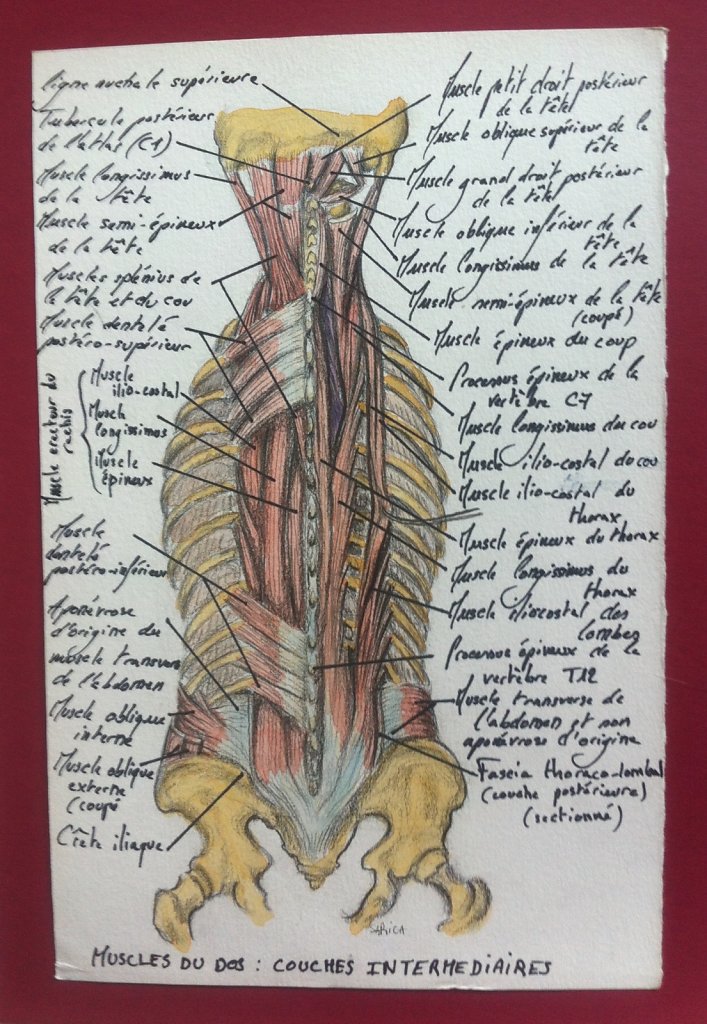 ligne nuchale supérieure
Tubercule postérieur
de l'atlas (C1)
Muscle longissimus
de la tête
Muscle semi-épineux
de la tête
Muscles splénius de
la tête et du cou
Muscle dentelé
postéro-supérieur
Muscle erecteur du
rachis
Muscle
ilio-costal
Muscle
longissimus
Muscle
épineux
Muscle
dentelé
postéro-inférieur
Aponévrose
d'origine du
muscle transvers
de l'abdomen
Muscle oblique
interne
Muscle oblique
externe
(coupé
Crête iliaque
Muscle petit droit postérieur
de la tête
Muscle oblique supérieur de la
tête
Muscle grand droit postérieur
de la tête
Muscle oblique inférieur de la
tête
Muscle longissimus de la tête
Muscle semi-épineux de la tête
(coupé)
Muscle épineux du coup
Processus épineux de la
vertèbre C7
Muscle longissimus du cou
Muscle ilio-costal du cou
Muscle ilio-costal du
thorax
Muscle épineux du thorax
Muscle longissimus du
thorax
Muscle iliocostal des
lombes
Processus épineux de la
vertèbre T12
Muscle transverse de
l'abdomen et son
aponévrose d'origine
Fascia thoraco-lombal
(couche postérieure)
(sectionné)
MUSCLES DU DOS : COUCHES INTERMEDIAIRES